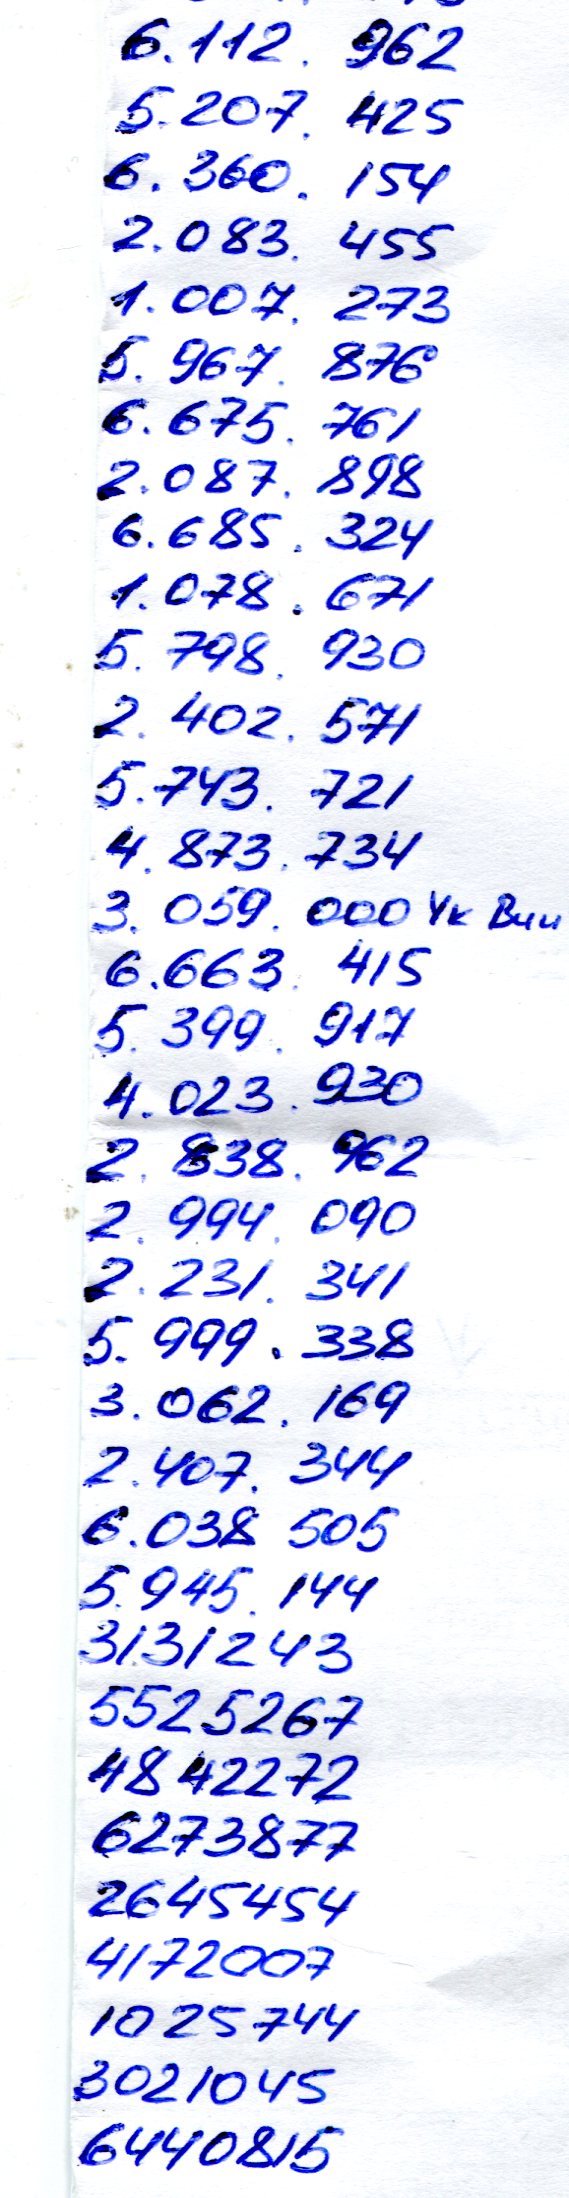 6.112. 962
5.207. 425
6. 360. 154
2.083. 455
1.007. 273
5. 967. 876
6.675. 761
2.087. 898
6.685. 324
1.078. 671
5. 798. 930
2. 402. 571
5.743. 721
4. 873. 734
3. 059. 000 Ук Вин
6.663. 415
5. 399. 917
4.023. 930
2. 838. 962
2. 994. 090
2. 231. 341
5. 999. 338
3. 062. 169
2. 407. 344
6.038 505
5.945. 144
3131243
5525267
4842272
6273877
2645454
4172007
1025744
3021045
6440815